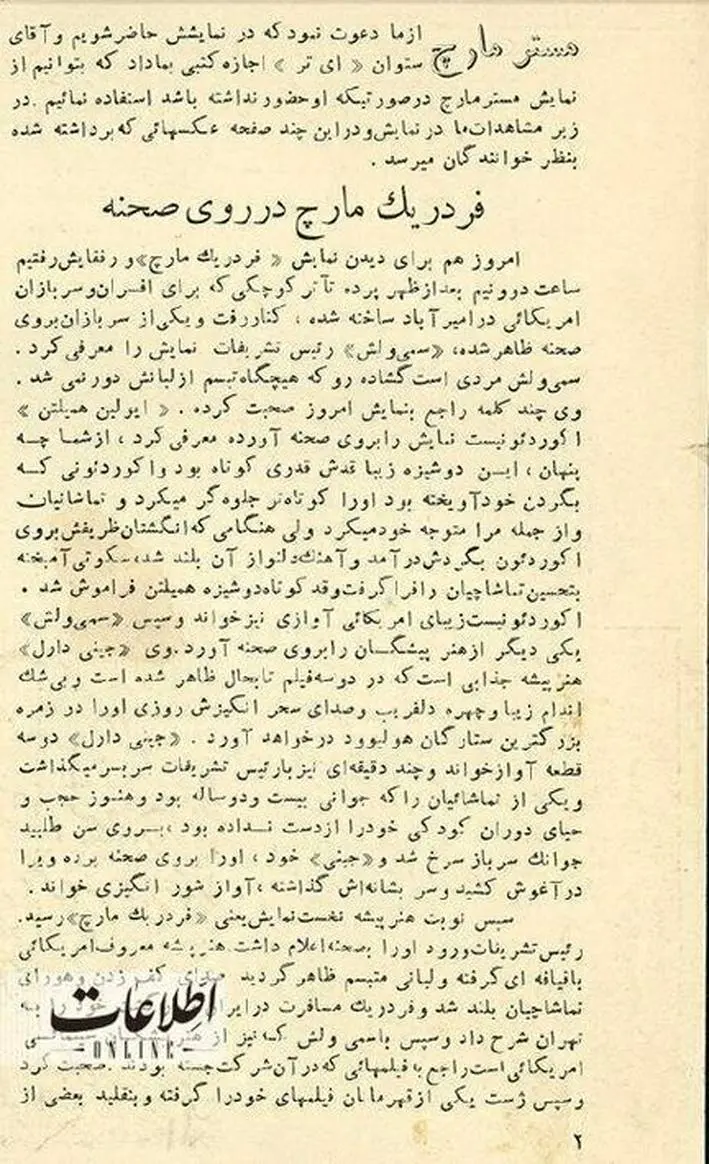 مستر مارچ
ازما دعوت نمود که در نمایشش حاضر شویم و آقای
ستوان « ای تر » اجازه کتبی بما داد که بتوانیم از
نمایش مستر مارچ درصورتیکه او حضور نداشته باشد استفاده نمائیم . در
زیر مشاهدات ما در نمایش و در این چند صفحه عکسهائی که برداشته شده
بنظر خوانندگان میرسد .
فردریك مارچ در روی صحنه
امروز هم برای دیدن نمایش « فردریك مارچ» و رفقایش رفتیم
ساعت دو و نیم بعد از ظهر پرده تآتر کوچکی که برای افسران و سربازان
امریکائی در امیر آباد ساخته شده ، کنار رفت و یکی از سربازان بروی
صحنه ظاهر شده، «سمی ولش» رئیس تشریفات نمایش را معرفی کرد .
سمی ولش مردی است گشاده رو که هیچگاه تبسم از لبانش دور نمی شد .
وی چند کلمه راجع بنمایش امروز صحبت کرده . « ایولین همیلتن »
اکوردئونیست نمایش را بروی صحنه آورده معرفی کرد ، از شما چه
پنهان ، این دوشیزه زیبا قدش قدری کوتاه بود و اکوردئونی که
بگردن خود آویخته بود اورا کوتاه تر جلوه گر میکرد و تماشائیان
و از جمله مرا متوجه خود میکرد ولی هنگامی که انگشتان ظریفش بروی
اکوردئون بگردش در آمد و آهنك دلنواز آن بلند شد، سکوتی آمیخته
بتحسین تماشاچیان را فرا گرفت و قد کوتاه دوشیزه همیلتن فراموش شد .
اکوردئونیست زیبای امریکائی آوازی نیز خواند و سپس «سمی ولش»
یکی دیگر از هنر پیشگان را بروی صحنه آورد . وی «جینی دارل»
هنر پیشه جذابی است که در دوسه فیلم تا بحال ظاهر شده است و بی شك
اندام زیبا و چهره دلفریب و صدای سحر انگیزش روزی اورا در زمره
بزرگترین ستارگان هولیوود در خواهد آورد . «جینی دارل» دوسه
قطعه آواز خواند و چند دقیقه ای نیز با رئیس تشریفات سر بسر میگذاشت
و یکی از تماشائیان را که جوانی بیست و دو ساله بود و هنوز حجب و
حیای دوران کودکی خود را از دست نداده بود ، بروی سن طلبید
جوانك سرباز سرخ شد و «جینی» خود ، اورا بروی صحنه برده ویرا
در آغوش کشید و سر بشانه اش گذاشته ، آواز شور انگیزی خواند .
سپس نوبت هنر پیشه نخست نمایش یعنی «فردریك مارچ» رسید.
رئیس تشریفات ورود اورا بصحنه اعلام داشت هنر پیشه معروف امریکائی
با قیافه ای گرفته و لبانی متبسم ظاهر گردید صدای کف زدن و هورای
تماشاچیان بلند شد و فردریك مسافرت در خود را به
تهران شرح داد و سپس با سمی ولش که نیز از
امریکائی است راجع به فیلمهائی که در آن شرکت جسته بودند . صحبت کرد
و سپس ژست یکی از قهرمانان فیلمهای خود را گرفته و بتقلید بعضی از
اطلاعات
ONLINE
۲